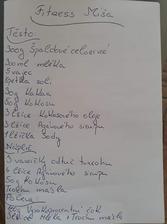 Fitness Míša
Těsto:
300g Špaldové celozrnné
300ml mléka
5 vajec
špetka soli
30g kakaa
50g kokosu
3 lžíce kokosového oleje
3 lžíce Agávového sirupu
1 lžička sody
Náplň:
3 vaničky odtuč. tvarohu
4 lžíce Agávového sirupu
50g kokosu
Trochu mléka
Poleva:
čok
mléka + trochu másla